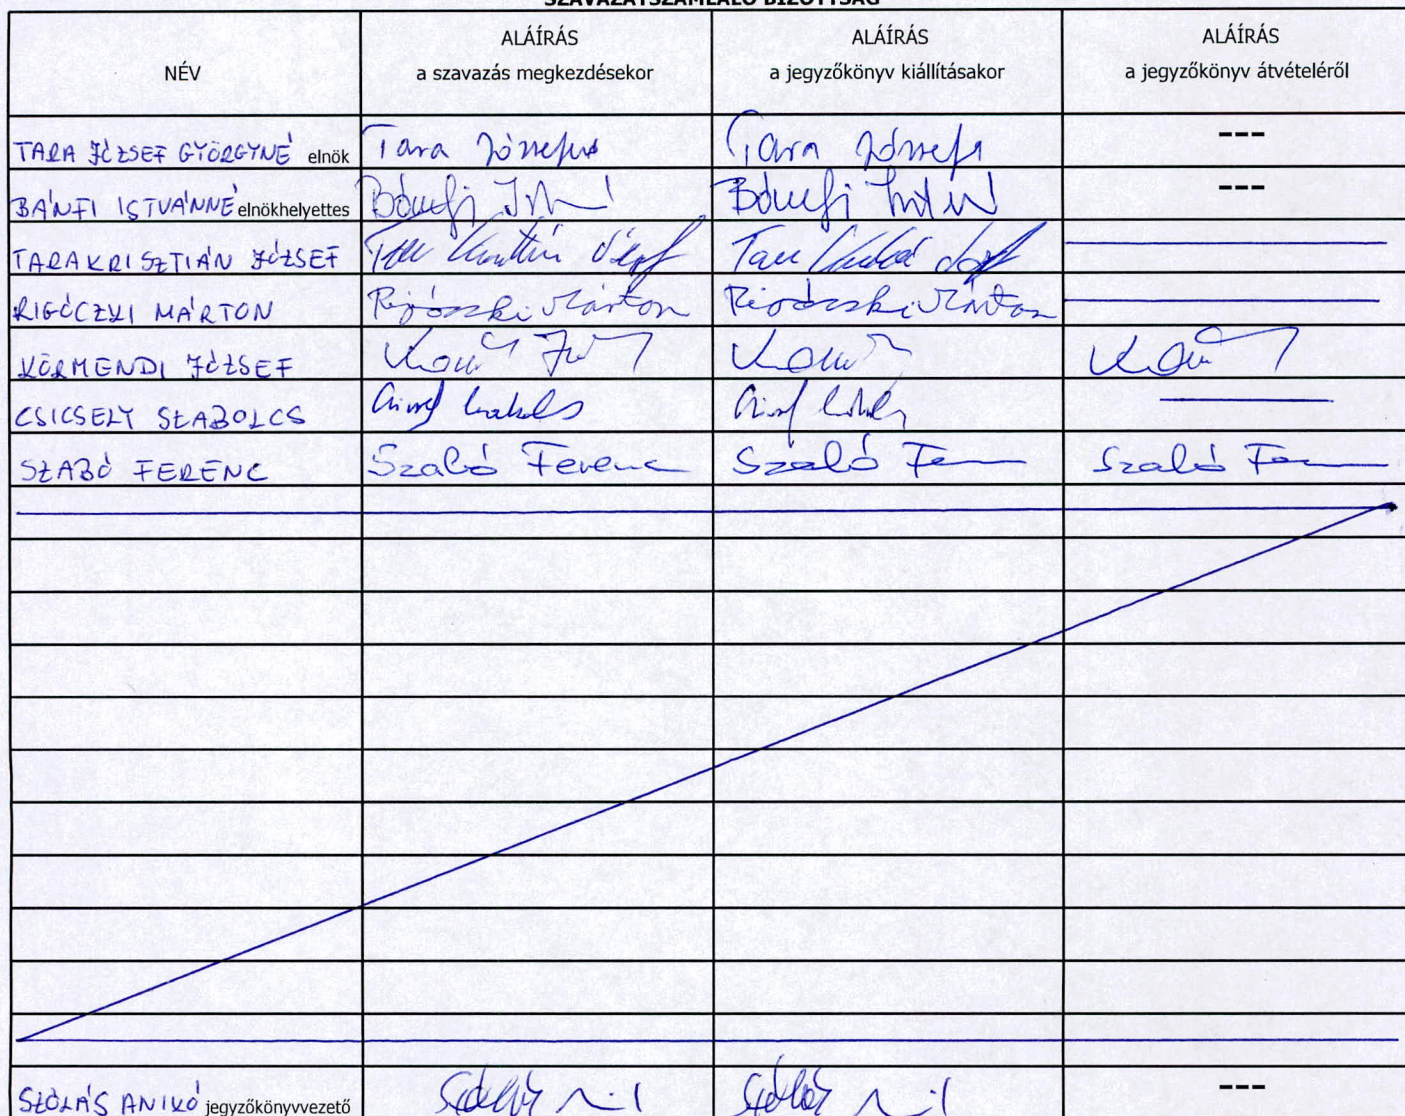 SZAVAZATSZÁMLÁLÓ BIZOTTSÁG
NÉV
ALÁÍRÁS
a szavazás megkezdésekor
ALÁÍRÁS
a jegyzőkönyv kiállításakor
ALÁÍRÁS
a jegyzőkönyv átvételéről
TARA JÓZSEF GYÖRGYNÉ elnök Tara Józsefné Tara Józsefné ---
BÁNFI ISTVÁNNÉ elnökhelyettes Bánfi Bánfi ---
TARA KRISZTIÁN JÓZSEF Tara Krisztián József Tara József
RIGÓCZKI MÁRTON Rigóczki Márton Rigóczki Márton
KÖRMENDI JÓZSEF
CSICSELY SZABOLCS
SZABÓ FERENC Szabó Ferenc Szabó Szabó
SZÓLÁS ANIKÓ jegyzőkönyvvezető ---